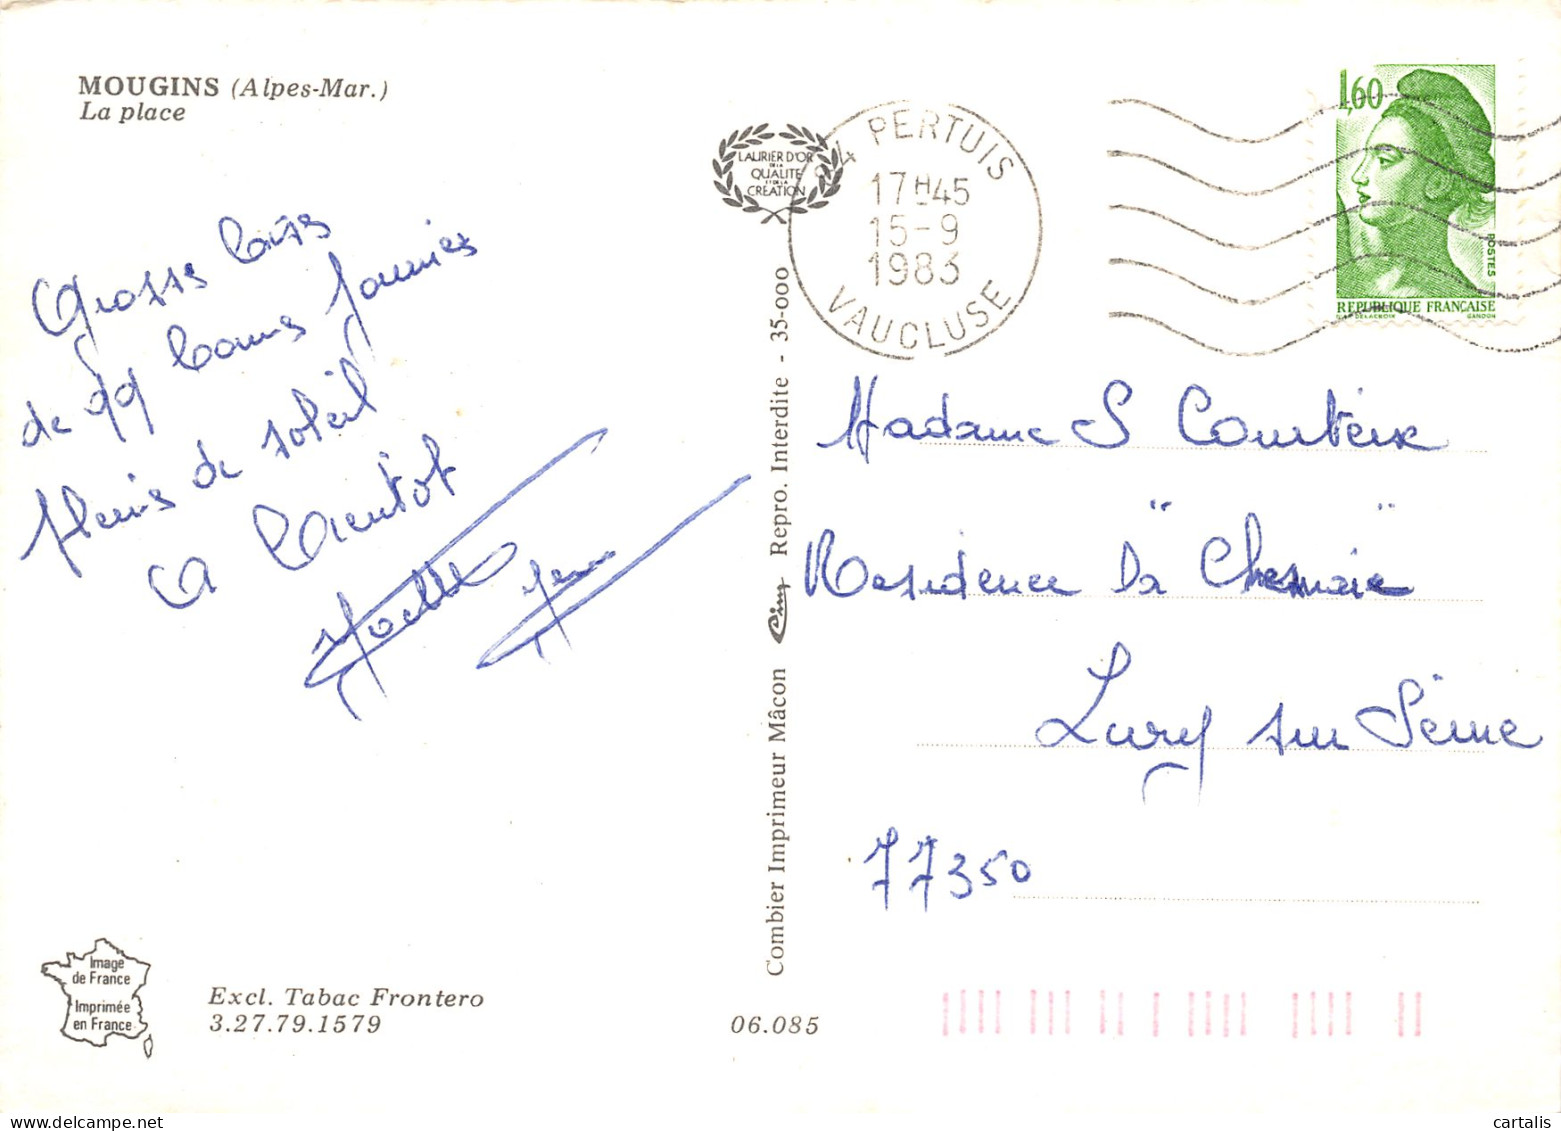 MOUGINS (Alpes-Mar.)
La place
Grosses bises
de qq bonnes journées
pleines de soleil
A bientôt
Noëlle
LAURIER D'OR
DE LA
QUALITÉ
ET DE LA
CRÉATION
84 PERTUIS
17H45
15-9
1983
VAUCLUSE
1,60
POSTES
REPUBLIQUE FRANÇAISE
GANDON
Madame S
Residence "La Chesnaie"
Lury sur Seine
77350
Combier Imprimeur Mâcon Cim Repro. Interdite - 35-000
Image
de France
Imprimée
en France
Excl. Tabac Frontero
3.27.79.1579
06.085
cartalis